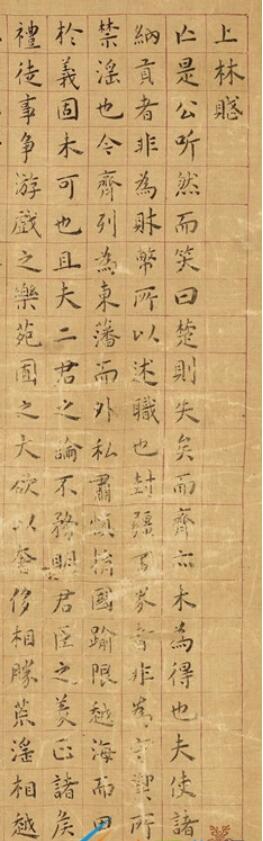 上林賦
亡是公听然而笑曰楚則失矣而齊亦未為得也夫使諸
納貢者非為財幣所以述職也封疆畫界者非為守禦所
禁淫也今齊列為東藩而外私肅慎捐國踰限越海而田
於義固未可也且夫二君之論不務明君臣之義正諸侯
禮徒事爭游戲之樂苑囿之大欲以奢侈相勝荒淫相越